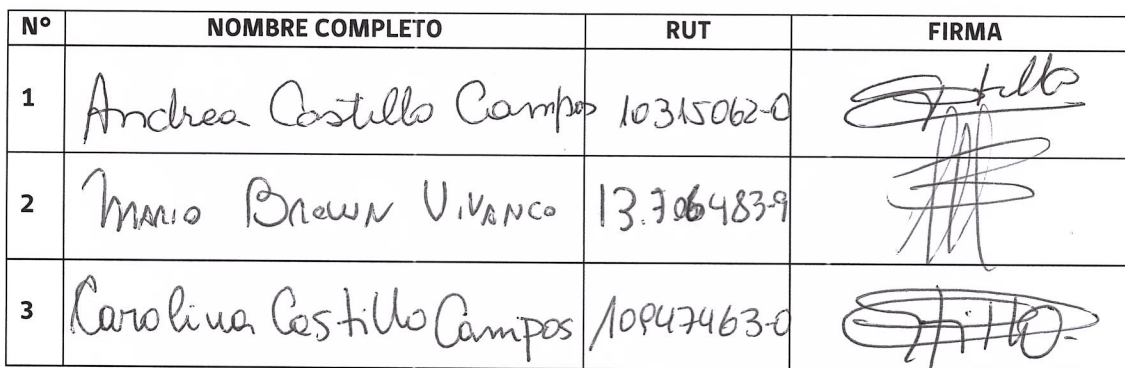 N° NOMBRE COMPLETO RUT FIRMA
1 Andrea Castillo Campos 10315062-0
2 Mario Brown Vivanco 13.706483-9
3 Carolina Castillo Campos 10947463-0